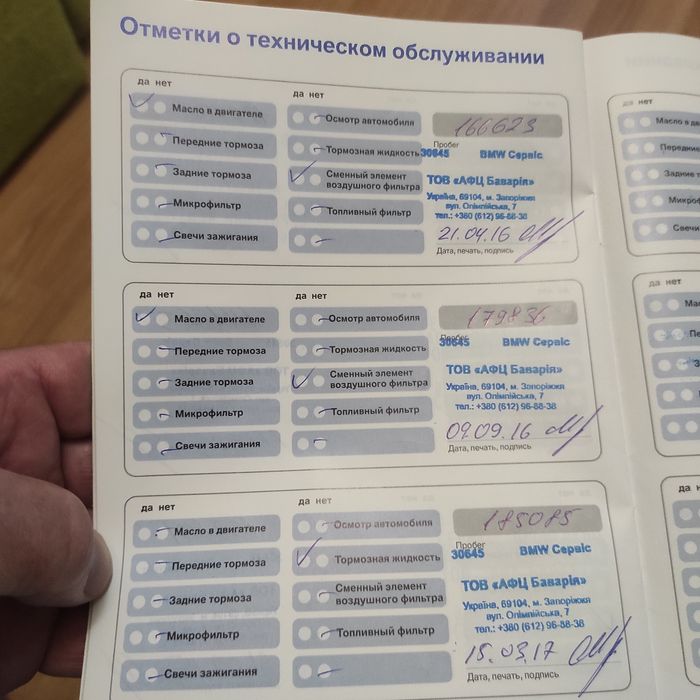 Отметки о техническом обслуживании
да нет
Масло в двигателе
Передние тормоза
Задние тормоза
Микрофильтр
Свечи зажигания
да нет
Осмотр автомобиля
Тормозная жидкость
Сменный элемент
воздушного фильтра
Топливный фильтр
166623
Пробег
30645 BMW Сервіс
ТОВ «АФЦ Баварія»
Україна, 69104, м. Запоріжжя
вул. Олімпійська, 7
тел.: +380 (612) 96-88-38
21.04.16
Дата, печать, подпись
да нет
Масло в двигателе
Передние тормоза
Задние тормоза
Микрофильтр
Свечи зажигания
да нет
Осмотр автомобиля
Тормозная жидкость
Сменный элемент
воздушного фильтра
Топливный фильтр
179836
Пробег
30645 BMW Сервіс
ТОВ «АФЦ Баварія»
Україна, 69104, м. Запоріжжя
вул. Олімпійська, 7
тел.: +380 (612) 96-88-38
09.09.16
Дата, печать, подпись
да нет
Масло в двигателе
Передние тормоза
Задние тормоза
Микрофильтр
Свечи зажигания
да нет
Осмотр автомобиля
Тормозная жидкость
Сменный элемент
воздушного фильтра
Топливный фильтр
185085
Пробег
30645 BMW Сервіс
ТОВ «АФЦ Баварія»
Україна, 69104, м. Запоріжжя
вул. Олімпійська, 7
тел.: +380 (612) 96-88-38
15.03.17
Дата, печать, подпись
да нет
Масло в
Передние
Задние
Свечи
да нет